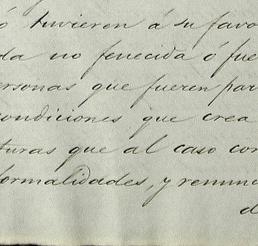 ó tuvieren á su favo
da no fenecida ó fue
ersonas que fueren par
condiciones que crea
turas que al caso con
formalidades, y renun
d